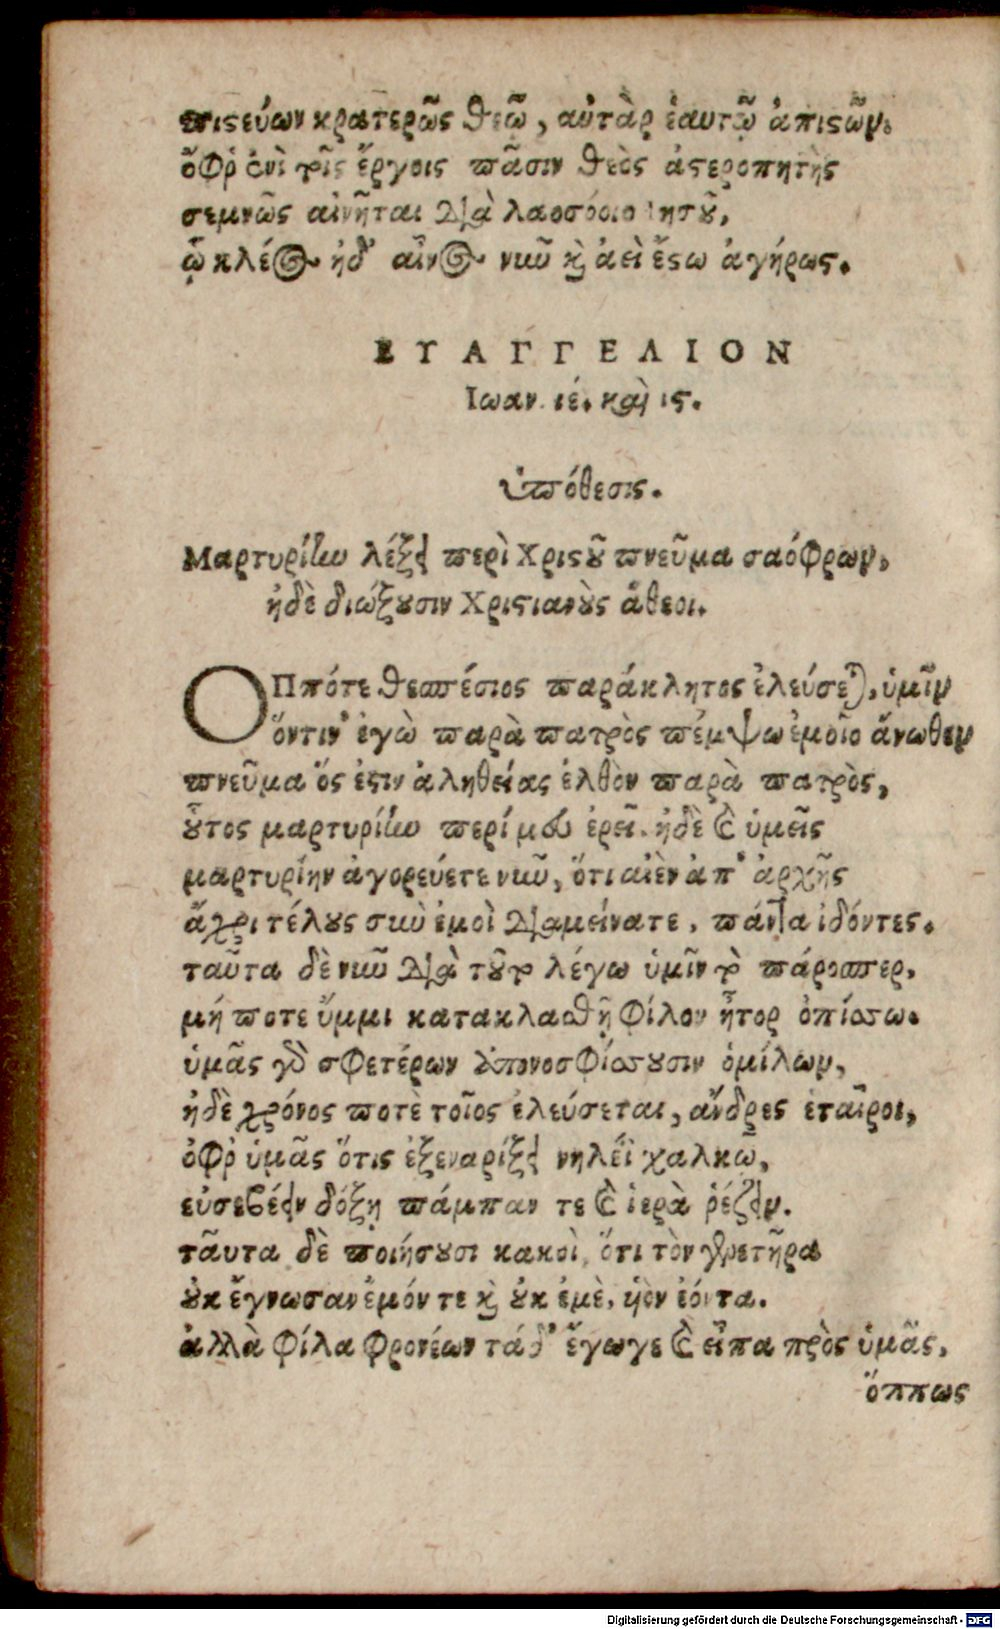 πιϛεύων κρατερῶς θεῷ, αὐτὰρ ἑαυτῷ ἀπιϛῶν.
ὄφρ' ἐνὶ τοῖς ἔργοις πᾶσιν θεὸς ἀϛεροπητὴς
σεμνῶς αἰνῆται διὰ λαοσόοιο ἰησοῦ,
ᾧ κλέος ἠδ' αἶνος νιῦ καὶ ἀεὶ ἔϛω ἀγήρως.
ΕΥΑΓΓΕΛΙΟΝ
Ιωαν. ιέ. καὶ ις.
ὑπόθεσις.
Μαρτυρίην λέξει περὶ Χριϛοῦ πνεῦμα σαόφρων,
ἠδὲ διώξουσιν Χριϛιανοὺς ἄθεοι.
ΟΠπότε θεσπέσιος παράκλητος ἐλεύσεται, ὑμῖν
ὅντιν' ἐγὼ παρὰ πατρὸς πέμψω ἐμοῖο ἄνωθεν
πνεῦμα ὅς ἐϛιν ἀληθείας ἐλθὸν παρὰ πατρὸς,
οὗτος μαρτυρίην περί μου ἐρεῖ. ἠδὲ καὶ ὑμεῖς
μαρτυρίην ἀγορεύετε νιῦ, ὅτι αἰὲν ἀπ' ἀρχῆς
ἄχρι τέλους σὺν ἐμοὶ διαμείνατε, πάντα ἰδόντες.
ταῦτα δὲ νιῦ διὰ τοῦτο λέγω ὑμῖν τὸ πάροσπερ,
μή ποτε ὔμμι κατακλασθῇ φίλον ἦτορ ὀπίσσω.
ὑμᾶς γὰρ σφετέρων ἀπονοσφίσσουσιν ὁμίλων,
ἠδὲ χρόνος ποτὲ τοῖος ἐλεύσεται, ἄνδρες ἑταῖροι,
ὀφρ' ὑμᾶς ὅτις ἐξεναρίξει νηλέϊ χαλκῷ,
εὐσεβέειν δόξῃ πάμπαν τε καὶ ἱερὰ ῥέζειν.
ταῦτα δὲ ποιήσουσι κακοὶ, ὅτι τὸν γενετῆρα
οὐκ ἔγνωσαν ἐμόν τε καὶ οὐκ ἐμὲ, ὑὸν ἐόντα.
ἀλλὰ φίλα φρονέων τάδ' ἔγωγε καὶ εἶπα πρὸς ὑμᾶς,
ὅππως
Digitalisierung gefördert durch die Deutsche Forschungsgemeinschaft - DFG